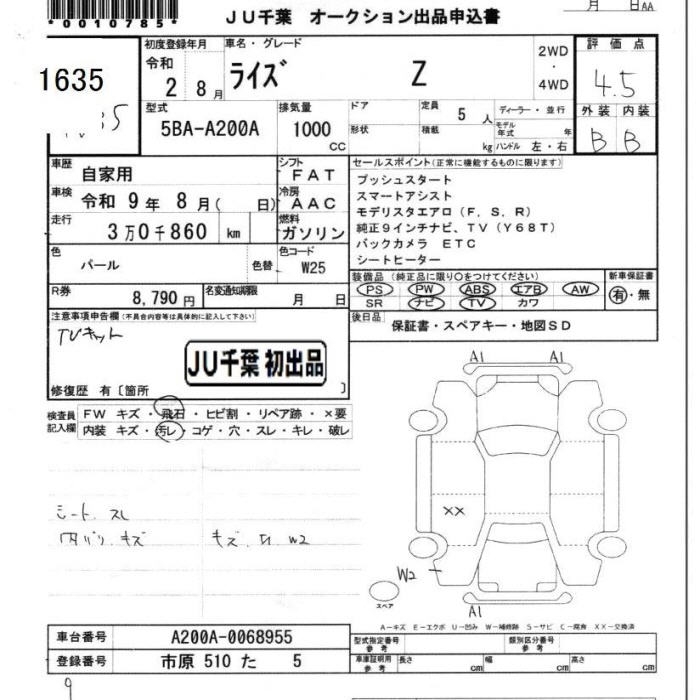 *0010785*
JU千葉 オークション出品申込書
月 日AA
1635
初度登録年月
令和
2 8月
車名・グレード
ライズ Z
2WD
・
4WD
評価点
4.5
外装 内装
B B
型式
5BA-A200A
排気量
1000
CC
ドア
形状
定員
5人
積載
kg
ディーラー・並行
モデル年式 年
ハンドル 左・右
車歴
自家用
シフト
FAT
車検
令和 9年 8月( 日)
冷房
AAC
走行
3万0千860 km
燃料
ガソリン
色
パール
色替
色コード
W25
R券
8,790円
名変通知期限
月 日
セールスポイント(正常に機能するものに限ります)
プッシュスタート
スマートアシスト
モデリスタエアロ(F,S,R)
純正9インチナビ、TV(Y68T)
バックカメラ ETC
シートヒーター
装備品(純正品に限り○をつけてください)
PS PW ABS エアB AW
SR ナビ TV カワ
新車保証書
有・無
後日品
保証書・スペアキー・地図SD
注意事項申告欄(不具合内容等は具体的に記入して下さい)
TVキット
JU千葉 初出品
修復歴 有〔箇所 〕
検査員記入欄
FW キズ・飛石・ヒビ割・リペア跡・×要
内装 キズ・汚レ・コゲ・穴・スレ・キレ・破レ
シート スレ
内バリ キズ
キズ W2
A1 A1
××
W2
A1
スペア
A−キズ E−エクボ U−凹み W−補修跡 S−サビ C−腐食 XX−交換済
車台番号
A200A-0068955
登録番号
市原 510 た 5
型式指定番号
参考
類別区分番号
参考
車庫証明用
参考
長さ cm
幅 cm
高さ cm
9